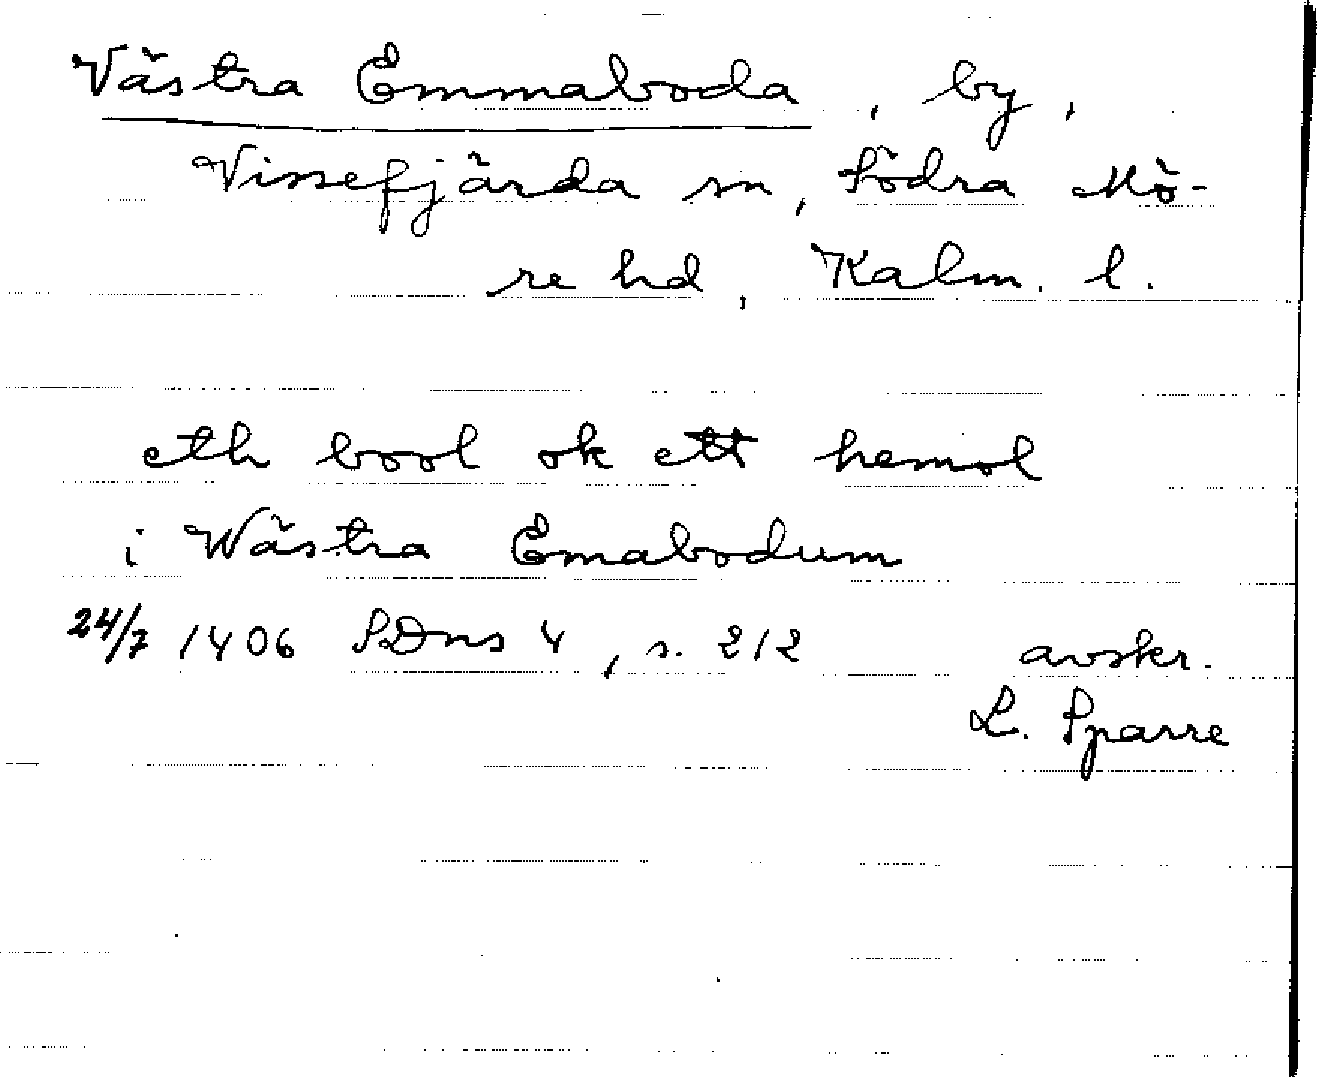 Västra Emmaboda, by,
Vissefjärda sn, Södra Mö-
re hd, Kalm. l.
eth bool ok ett hemol
i Wästra Emabodum
24/7 1406 SDns 4, s. 212 avskr.
L. Sparre